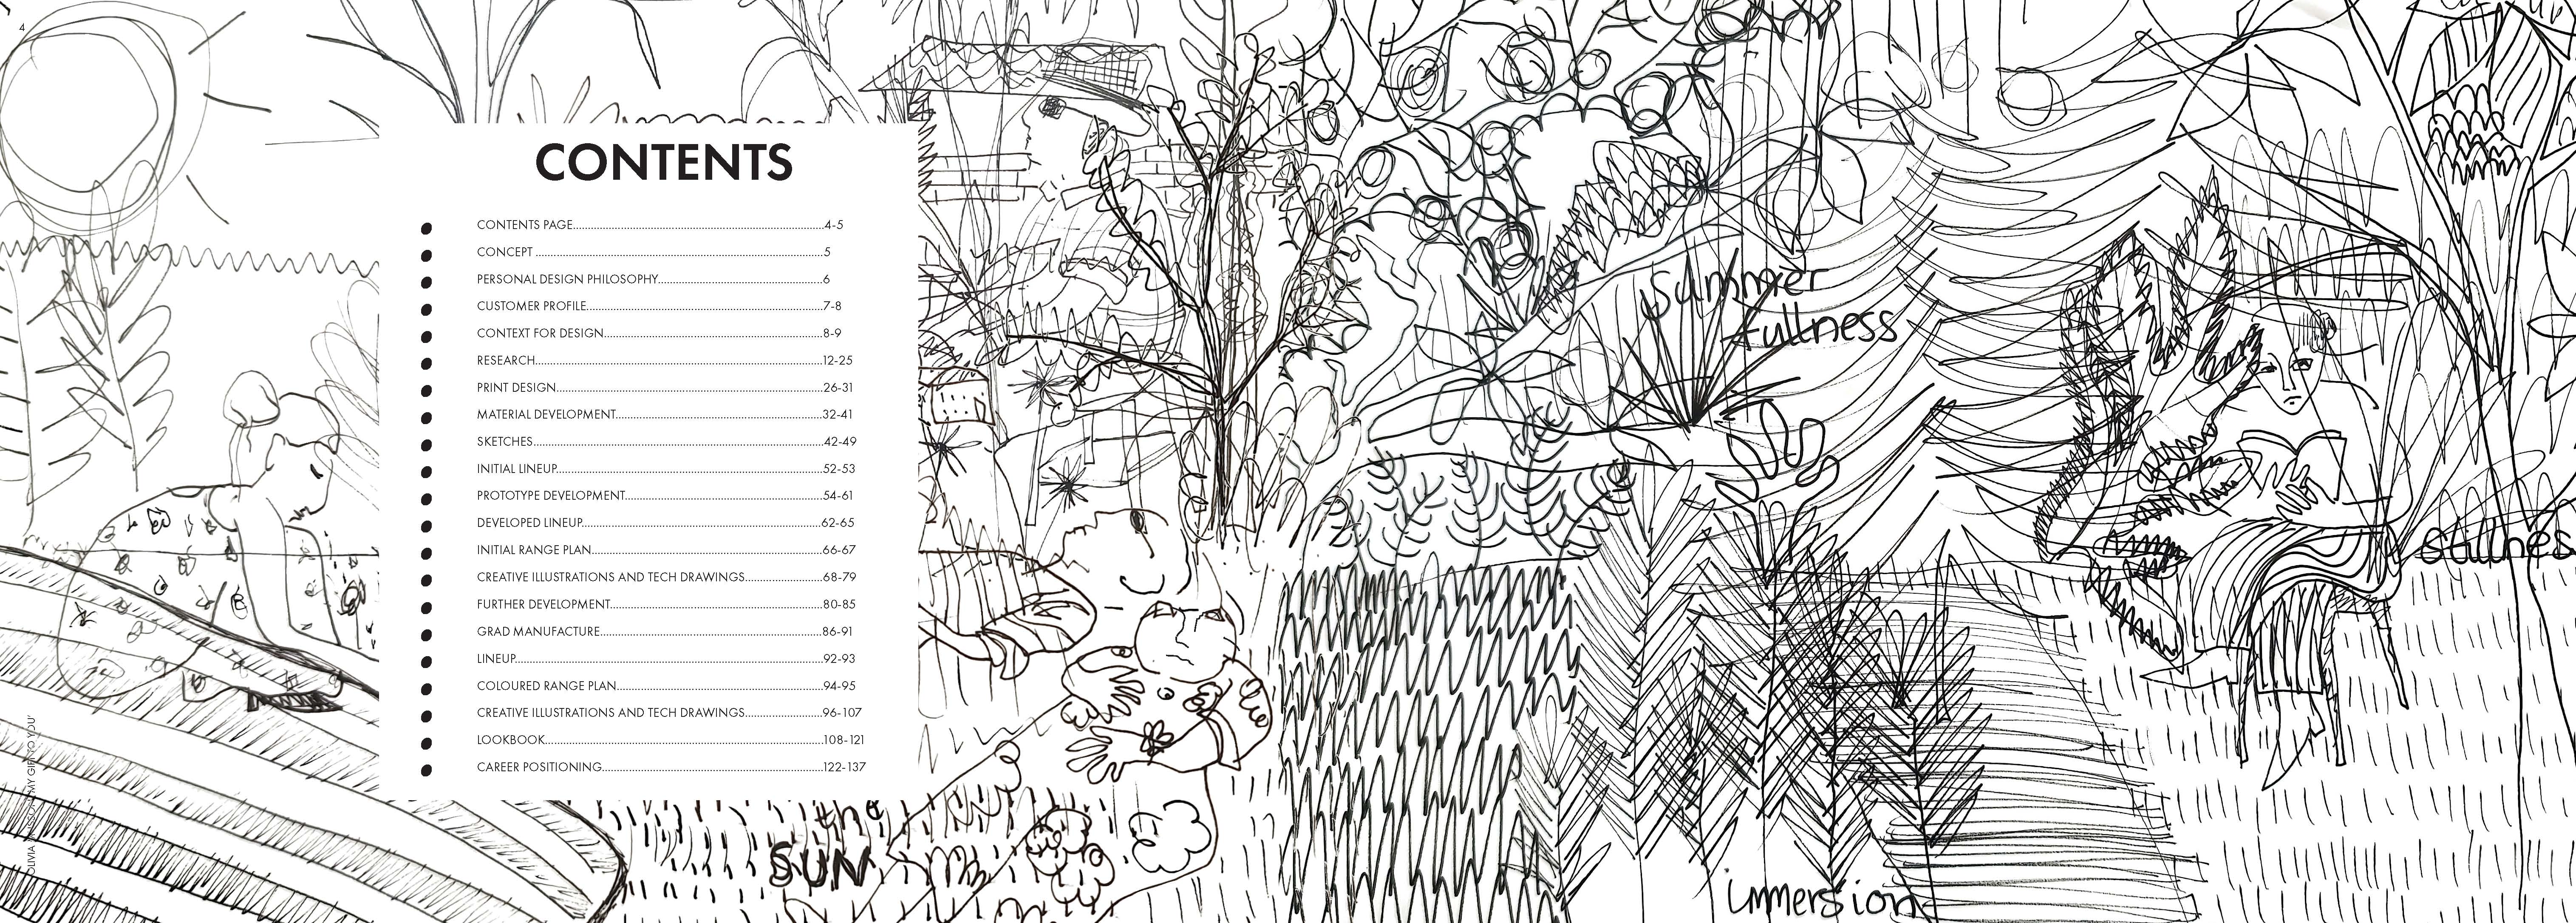 4
CONTENTS
CONTENTS PAGE..........4-5
CONCEPT ..........5
PERSONAL DESIGN PHILOSOPHY..........6
CUSTOMER PROFILE..........7-8
CONTEXT FOR DESIGN..........8-9
RESEARCH..........12-25
PRINT DESIGN..........26-31
MATERIAL DEVELOPMENT..........32-41
SKETCHES..........42-49
INITIAL LINEUP..........52-53
PROTOTYPE DEVELOPMENT..........54-61
DEVELOPED LINEUP..........62-65
INITIAL RANGE PLAN..........66-67
CREATIVE ILLUSTRATIONS AND TECH DRAWINGS..........68-79
FURTHER DEVELOPMENT..........80-85
GRAD MANUFACTURE..........86-91
LINEUP..........92-93
COLOURED RANGE PLAN..........94-95
CREATIVE ILLUSTRATIONS AND TECH DRAWINGS..........96-107
LOOKBOOK..........108-121
CAREER POSITIONING..........122-137
summer
fullness
stillnes
the
SUN
immersion
OLIVIA
MY GIFT TO YOU'